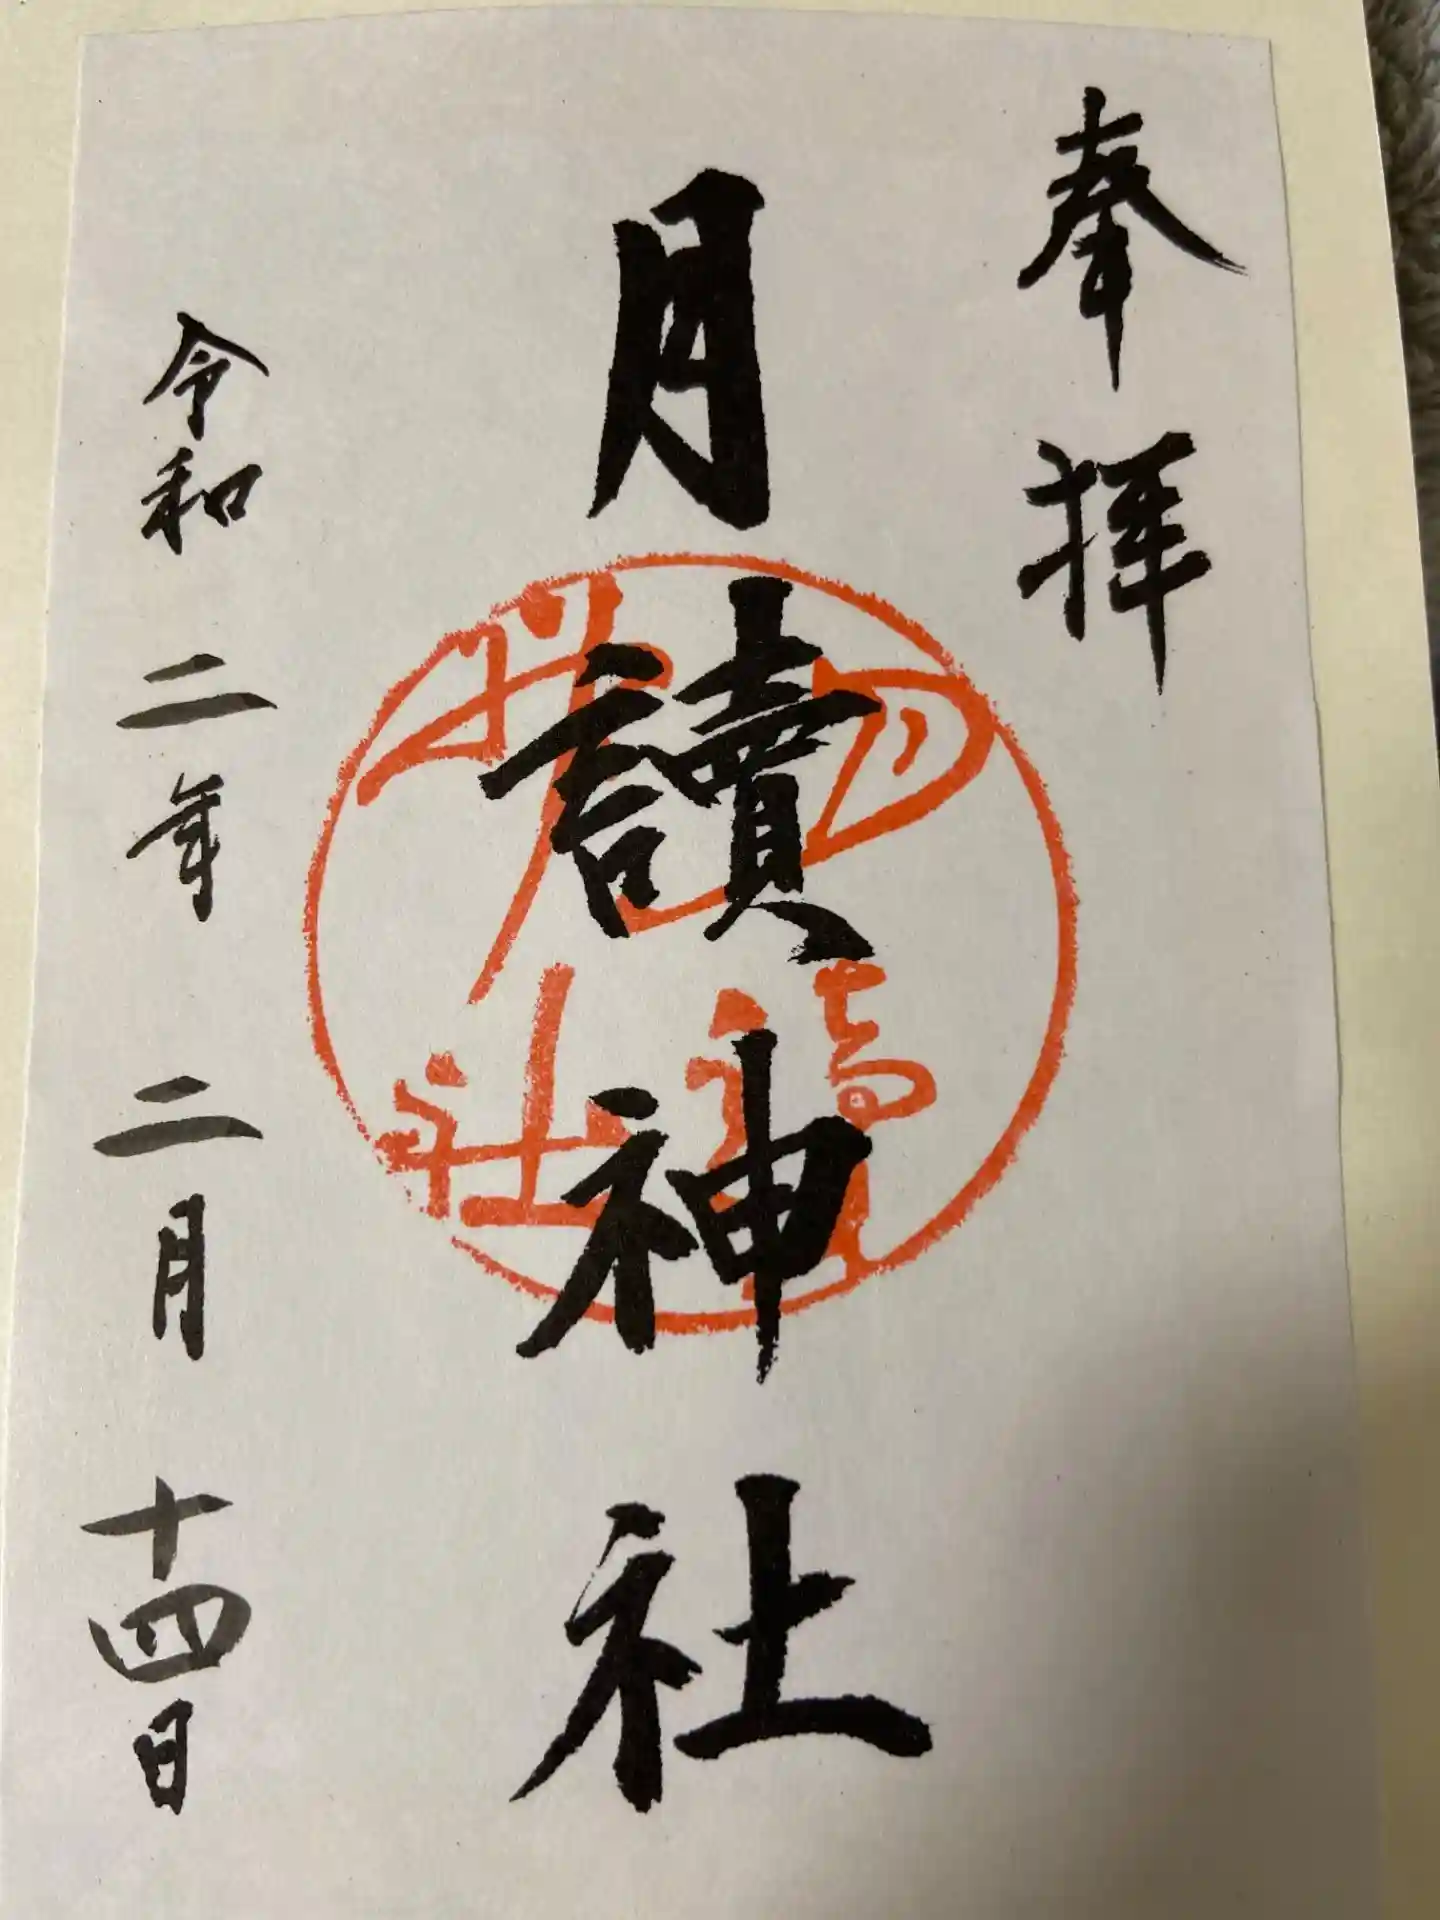 奉拝
月讀神社
令和二年二月十四日